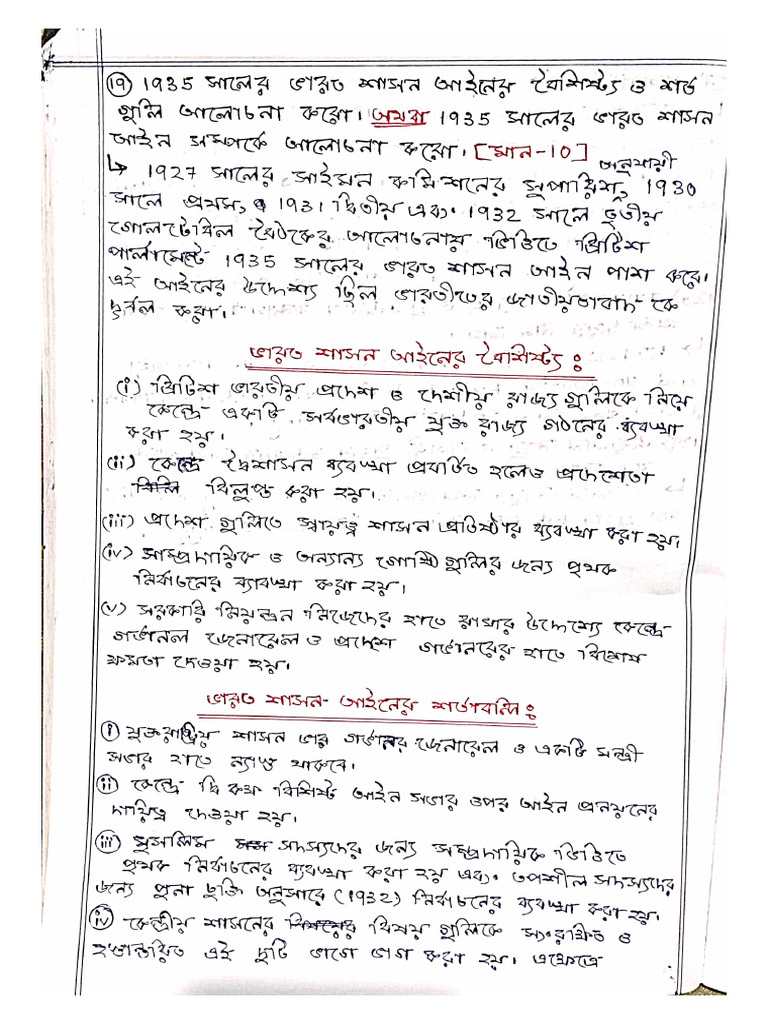 (19) 1935 সালের ভারত শাসন আইনের বৈশিষ্ট্য ও শর্ত
গুলি আলোচনা করো। অথবা 1935 সালের ভারত শাসন
আইন সম্পর্কে আলোচনা করো। [মান-10]
↳ 1927 সালের সাইমন কমিশনের সুপারিশ অনুযায়ী, 1930
সালে প্রথম, 1931 দ্বিতীয় এবং 1932 সালে তৃতীয়
গোলটেবিল বৈঠকের আলোচনার ভিত্তিতে ব্রিটিশ
পার্লামেন্ট 1935 সালের ভারত শাসন আইন পাশ করে।
এই আইনের উদ্দেশ্য ছিল ভারতীতের জাতীয়তাবাদ-কে
দুর্বল করা।
ভারত শাসন আইনের বৈশিষ্ট্য :
(i) ব্রিটিশ ভারতীয় প্রদেশ ও দেশীয় রাজ্য গুলিকে নিয়ে
কেন্দ্রে একটি সর্বভারতীয় যুক্ত রাজ্য গঠনের ব্যবস্থা
করা হয়।
(ii) কেন্দ্রে দ্বৈশাসন ব্যবস্থা প্রবর্তিত হলেও প্রদেশেতা
বিলুপ্ত করা হয়।
(iii) প্রদেশ গুলিতে স্বায়ত্ব শাসন প্রতিষ্ঠার ব্যবস্থা করা হয়।
(iv) সাম্প্রদায়িক ও অন্যান্য গোষ্ঠি গুলির জন্য পৃথক
নির্বাচনের ব্যাবস্থা করা হয়।
(v) সরকারি নিয়ন্ত্রন নিজেদের হাতে রাখার উদ্দেশ্যে কেন্দ্রে
গর্ভনল জেনারেল ও প্রদেশ গর্ভনরের হাতে বিশেষ
ক্ষমতা দেওয়া হয়।
ভারত শাসন-আইনের শর্তাবলি :
(i) যুক্তরাষ্ট্রীয় শাসন ভার গর্ভনর জেনারেল ও একটি মন্ত্রী
সভার হাতে ন্যাস্ত থাকবে।
(ii) কেন্দ্রে দ্বি কক্ষ বিশিষ্ট আইন সভার ওপর আইন প্রনয়নের
দায়িত্ব দেওয়া হয়।
(iii) মুসলিম সদস্যদের জন্য সম্প্রদায়িক ভিত্তিতে
পৃথক নির্বাচনের ব্যবস্থা করা হয় এবং তপশীল সদস্যদের
জন্য পুনা চুক্তি অনুসারে (1932) নির্বাচনের ব্যবস্থা করা হয়।
(iv) কেন্দ্রীয় শাসনের বিষয় গুলিকে সংরক্ষিত ও
হস্তান্তরিত এই দুটি ভাগে ভাগ করা হয়। এক্ষেত্রে